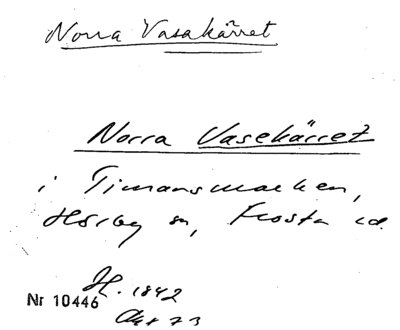 Norra Vasakärret
Norra Vasekärret
i Timansmarken,
Hörby sn, Frosta hd.
H. 1842
Nr 10446
Akt 73